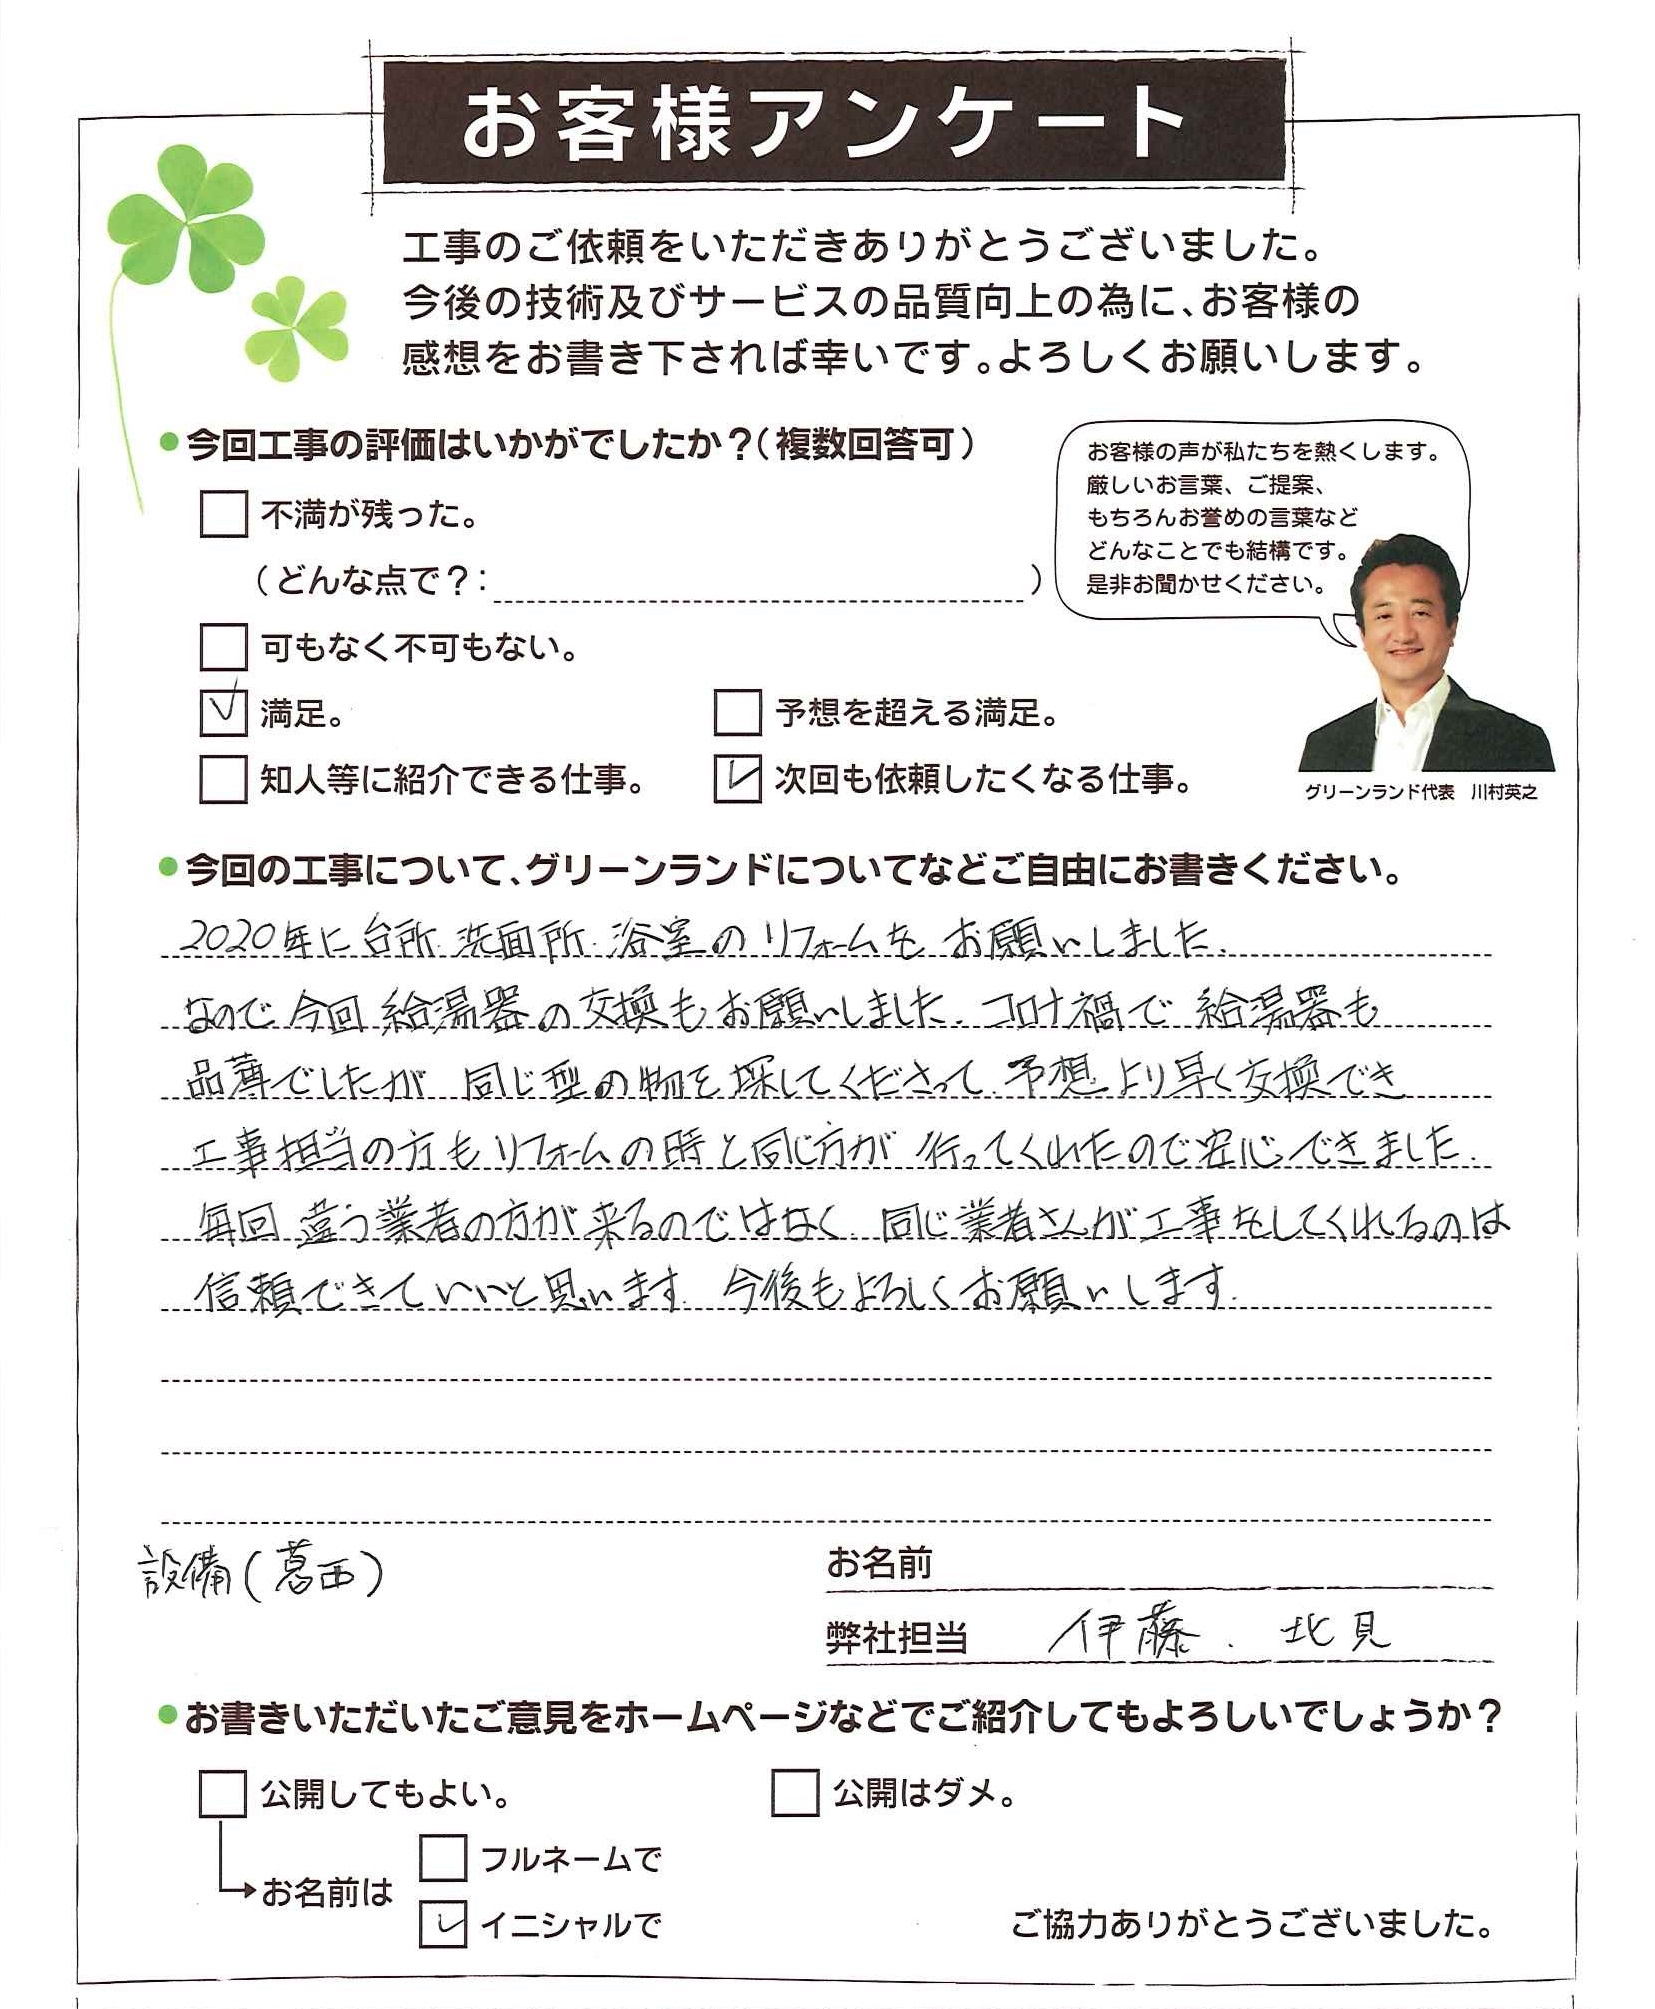 お客様アンケート
工事のご依頼をいただきありがとうございました。
今後の技術及びサービスの品質向上の為に、お客様の
感想をお書き下されば幸いです。よろしくお願いします。
●今回工事の評価はいかがでしたか？(複数回答可)
不満が残った。
(どんな点で？: )
可もなく不可もない。
満足。
予想を超える満足。
知人等に紹介できる仕事。
次回も依頼したくなる仕事。
お客様の声が私たちを熱くします。
厳しいお言葉、ご提案、
もちろんお誉めの言葉など
どんなことでも結構です。
是非お聞かせください。
グリーンランド代表 川村英之
●今回の工事について、グリーンランドについてなどご自由にお書きください。
2020年に台所.洗面所.浴室のリフォームをお願いしました.
なので今回給湯器の交換もお願いしました.コロナ禍で給湯器も
品薄でしたが 同じ型の物を探してくださって.予想より早く交換でき
工事担当の方もリフォームの時と同じ方が 行ってくれたので安心できました.
毎回 違う業者の方が来るのではなく.同じ業者さんが工事をしてくれるのは
信頼できていいと思います.今後もよろしくお願いします.
設備(葛西)
お名前
弊社担当 伊藤.北見
●お書きいただいたご意見をホームページなどでご紹介してもよろしいでしょうか？
公開してもよい。
公開はダメ。
お名前は
フルネームで
イニシャルで
ご協力ありがとうございました。